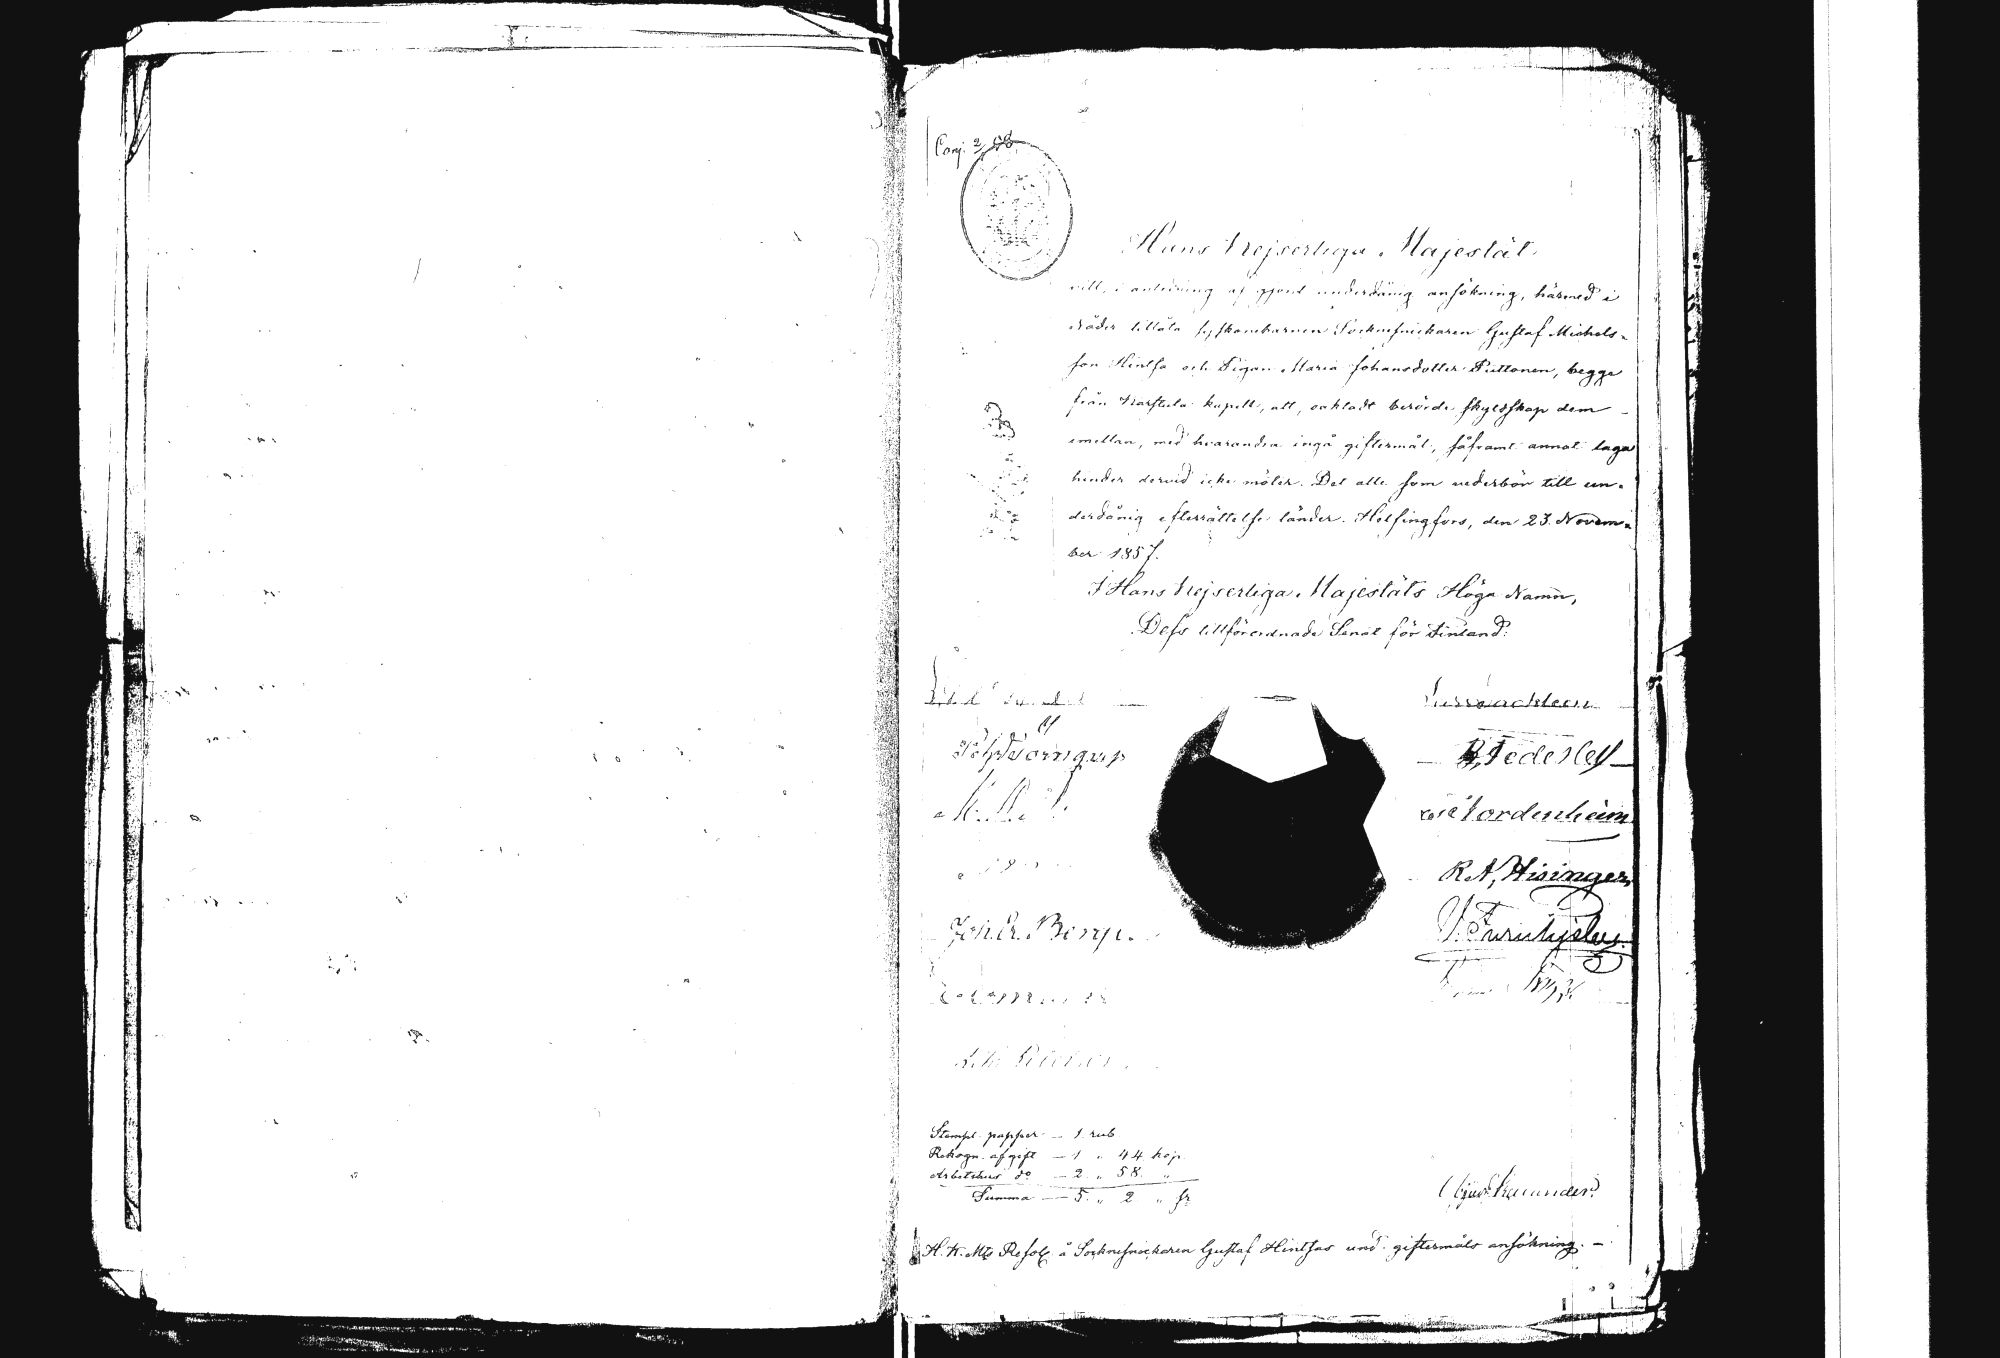 Conj. 2/58
Hans Kejserliga Majestät
vill, i anledning af gjord underdånig ansökning, härmed i
Nåder tillåta syskonebarnen Socknesnickaren Gustaf Michels-
son Hintsa och Pigan Maria Johansdotter Puttonen, begge
från Karstula kapell, att, oaktadt berörde skyldskap dem
emellan, med hvarandra ingå giftermål, såframt annat laga
hinder dervid icke möter. Det alle som vederbör till un-
derdånig efterrättelse länder. Helsingfors, den 23. Novem-
ber 1857.
I Hans Kejserliga Majestäts Höga Namn,
Dess tillförordnade Senat för Finland:
Törnqvist
B. Federley
Nordenheim
R. A, Hisinger,
Joh. Er. Bergb.
V. Furuhjelm.
Stämpl. papper — 1. rub
Rekogn. afgift — 1 „ 44. kop.
Arbetshus do — 2. „ 58. „
Summa — 5. „ 2 „ sr
H. K. Mts Resol. å Socknesnickaren Gustaf Hintsas und. giftermåls ansökning. —